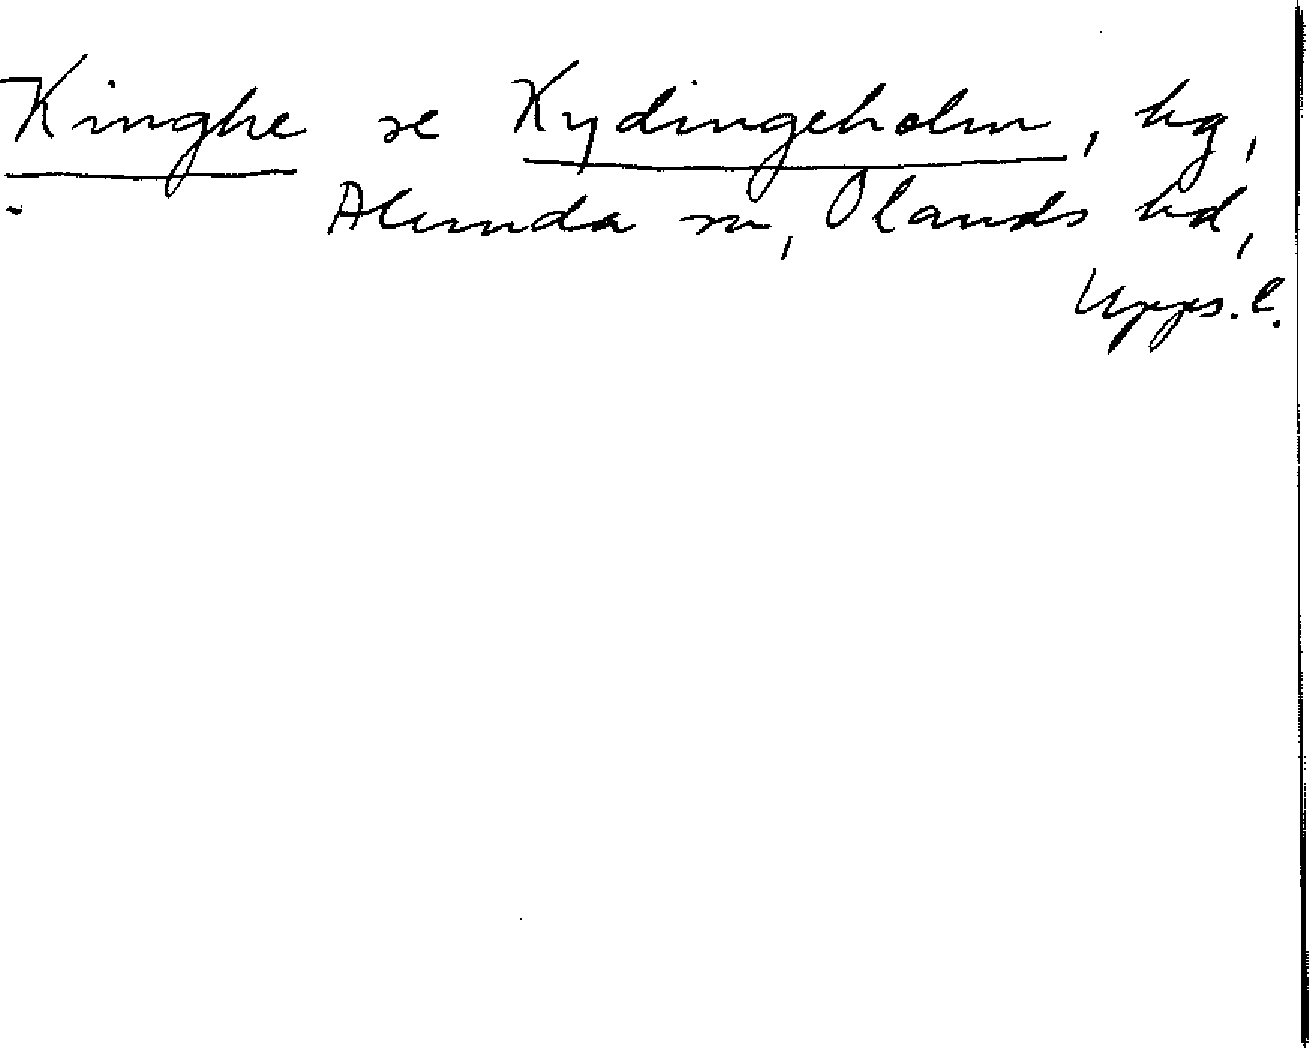 Kinghe se Kydingeholm, hg,
Alunda sn, Olands hd,
Upps. l.